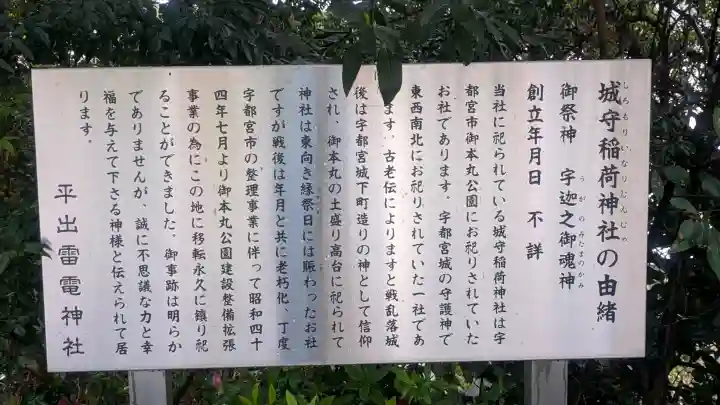 城守稲荷神社の由緒
しろもりいなりじんじゃ
御祭神　宇迦之御魂神
うがのみたまのかみ
創立年月日　不詳
当社に祀られている城守稲荷神社は宇
都宮市御本丸公園にお祀りされていた
お社であります。宇都宮城の守護神で
東西南北にお祀りされていた一社であ
ます。古老伝によりますと戦乱落城
後は宇都宮城下町造りの神として信仰
され、御本丸の土盛り高台に祀られて
神社は東向き縁祭日には賑わったお社
ですが戦後は年月と共に老朽化、丁度
宇都宮市の整理事業に伴って昭和四十
四年七月より御本丸公園建設整備拡張
事業の為にこの地に移転永久に鎮り祀
ることができました、御事跡は明らか
でありませんが、誠に不思議な力と幸
福を与えて下さる神様と伝えられて居
ります。
平出雷電神社